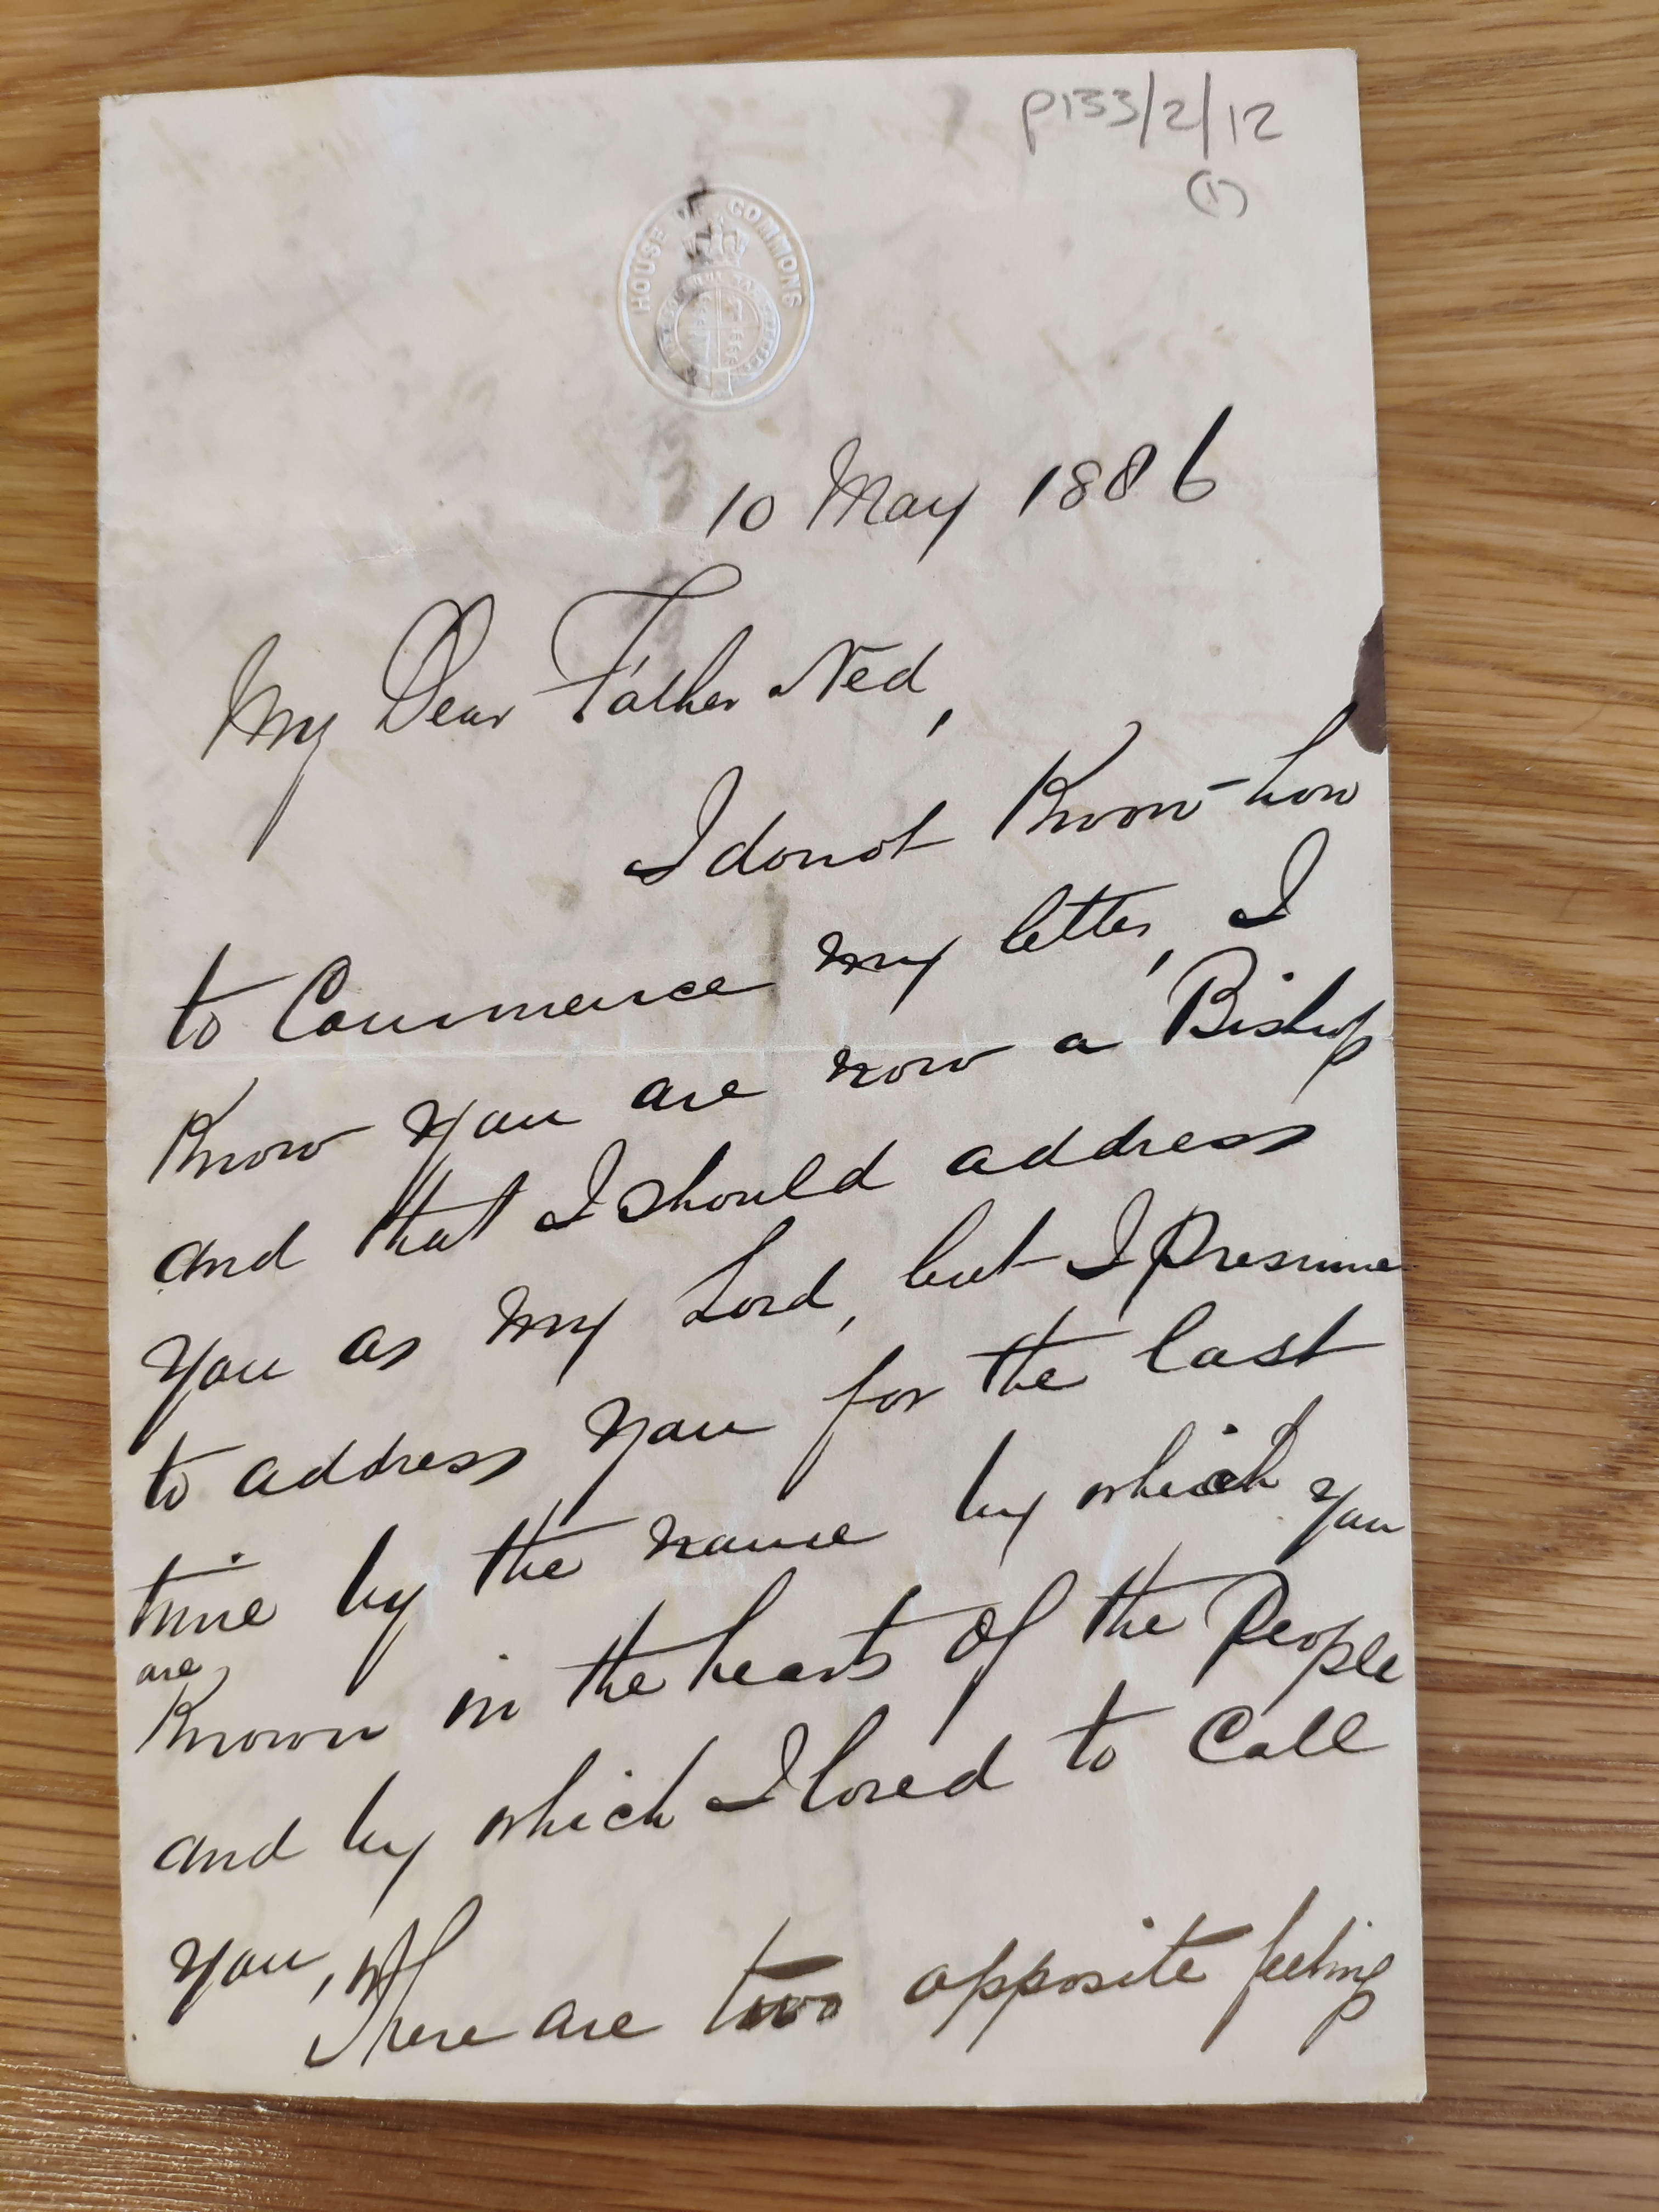 P133/2/12
(1)
HOUSE OF COMMONS
10 May 1886
My Dear Father Ned,
I do not Know how
to Commence my letter, I
Know you are now a Bishop
and that I should address
you as my Lord, but I Presume
to address you for the last
time by the name by which you
are
Known in the hearts of the People
and by which I loved to Call
you,
There are two opposite feeling